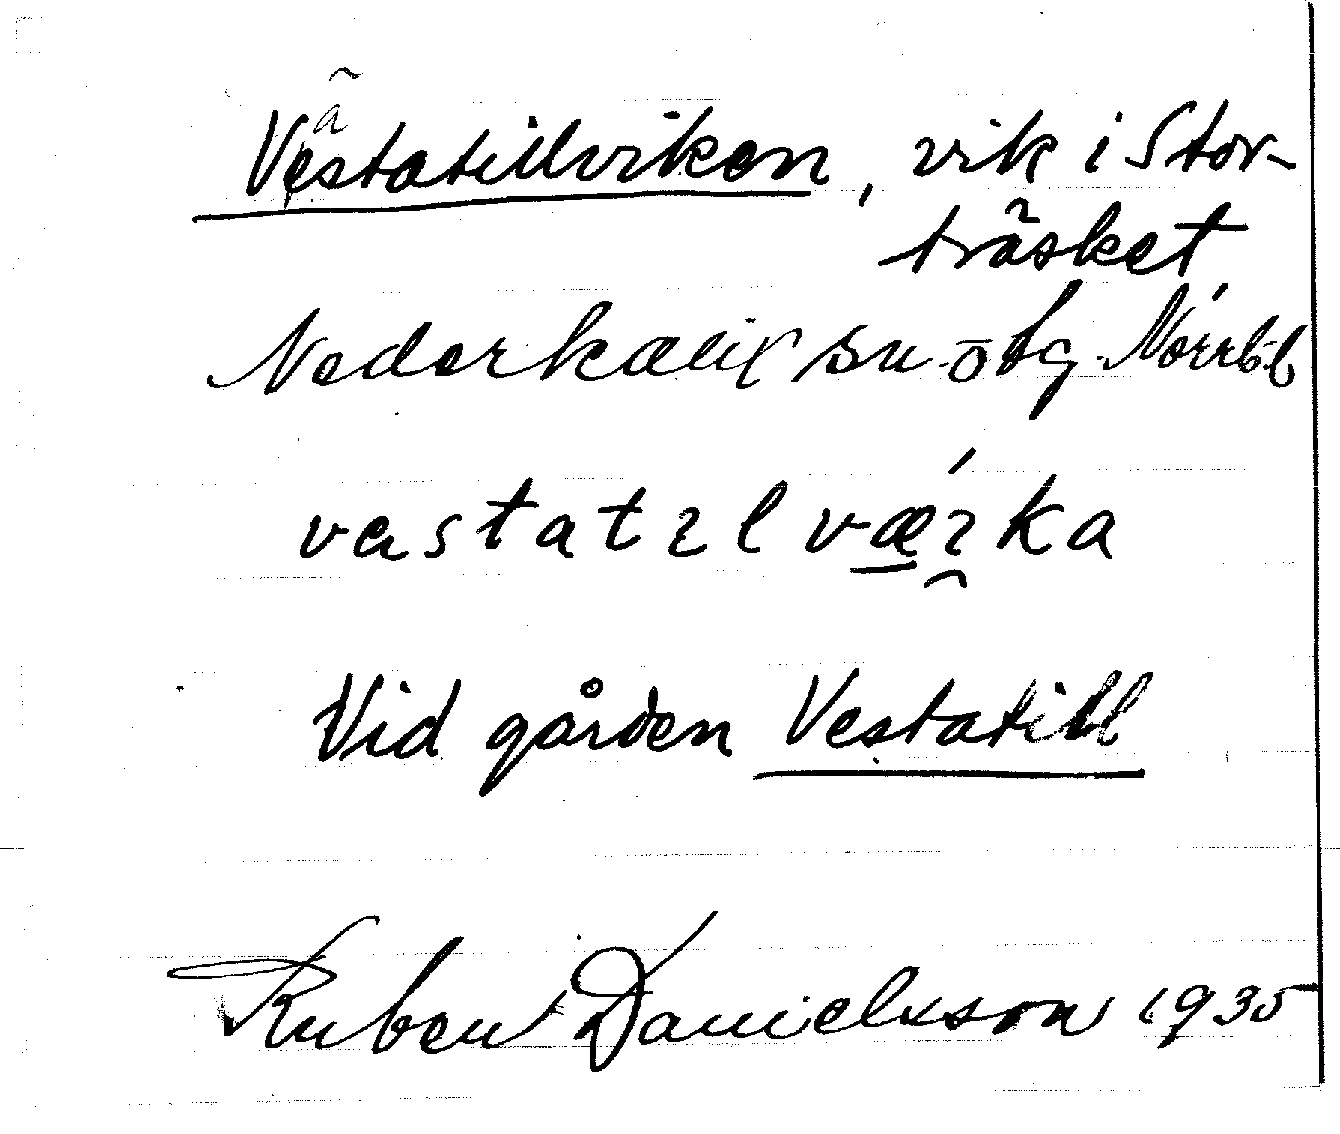 Vestatillviken, vik i Stor-
träsket
Nederkalix sn öbg Norrb.l
vestatɩlvǽ̱ɩ̯ka
Vid gården Vestatill
Ruben Danielsson 1935